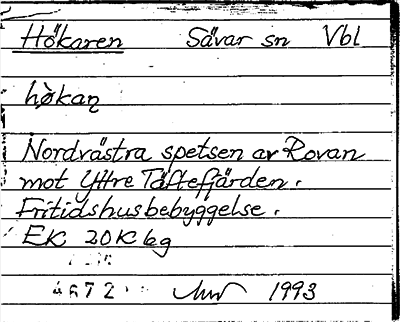 Hökaren Sävar sn Vbl
hòkaɳ
Nordvästra spetsen av Rovan
mot Yttre Täftefjärden.
Fritidshusbebyggelse.
EK 20K 6g
4672 1993